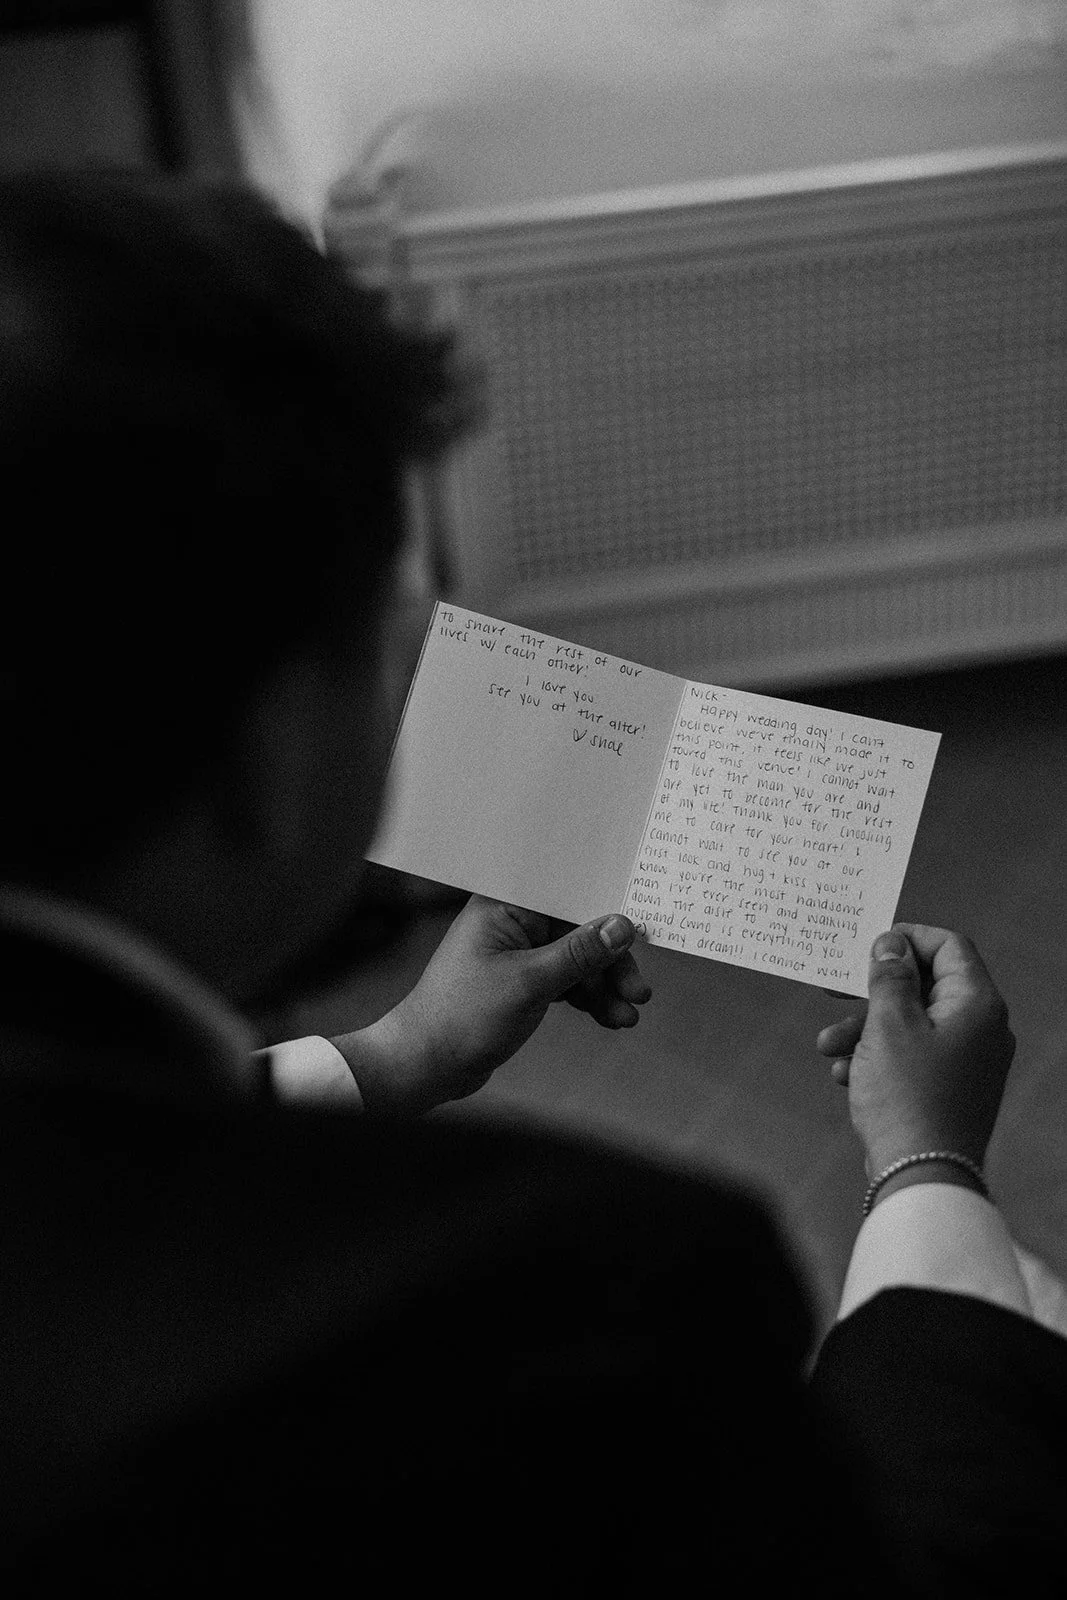 NICK-
Happy wedding day! I can't
believe we've finally made it to
this point, it feels like we just
toured this venue! I cannot wait
to love the man you are and
are yet to become for the rest
of my life! Thank you for choosing
me to care for your heart! I
cannot wait to see you at our
first look and hug + kiss you!! I
know you're the most handsome
man I've ever seen and walking
down the aisle to my future
husband (who is everything you
is my dream!! I cannot wait
to share the rest of our
lives w/ each other!
I love you
see you at the alter!
♡ Shae